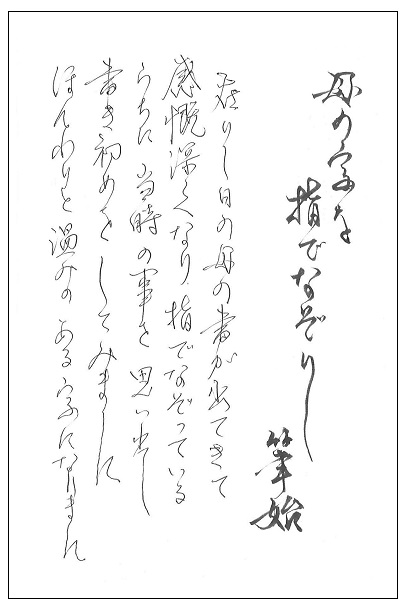 母の字を
指でなぞりし
筆始
在りし日の母の書が出てきて
感慨深くなり指でなぞっている
うちに当時の事を思い出し
書き初めをしてみました
ほんわりと温みのある字になりました